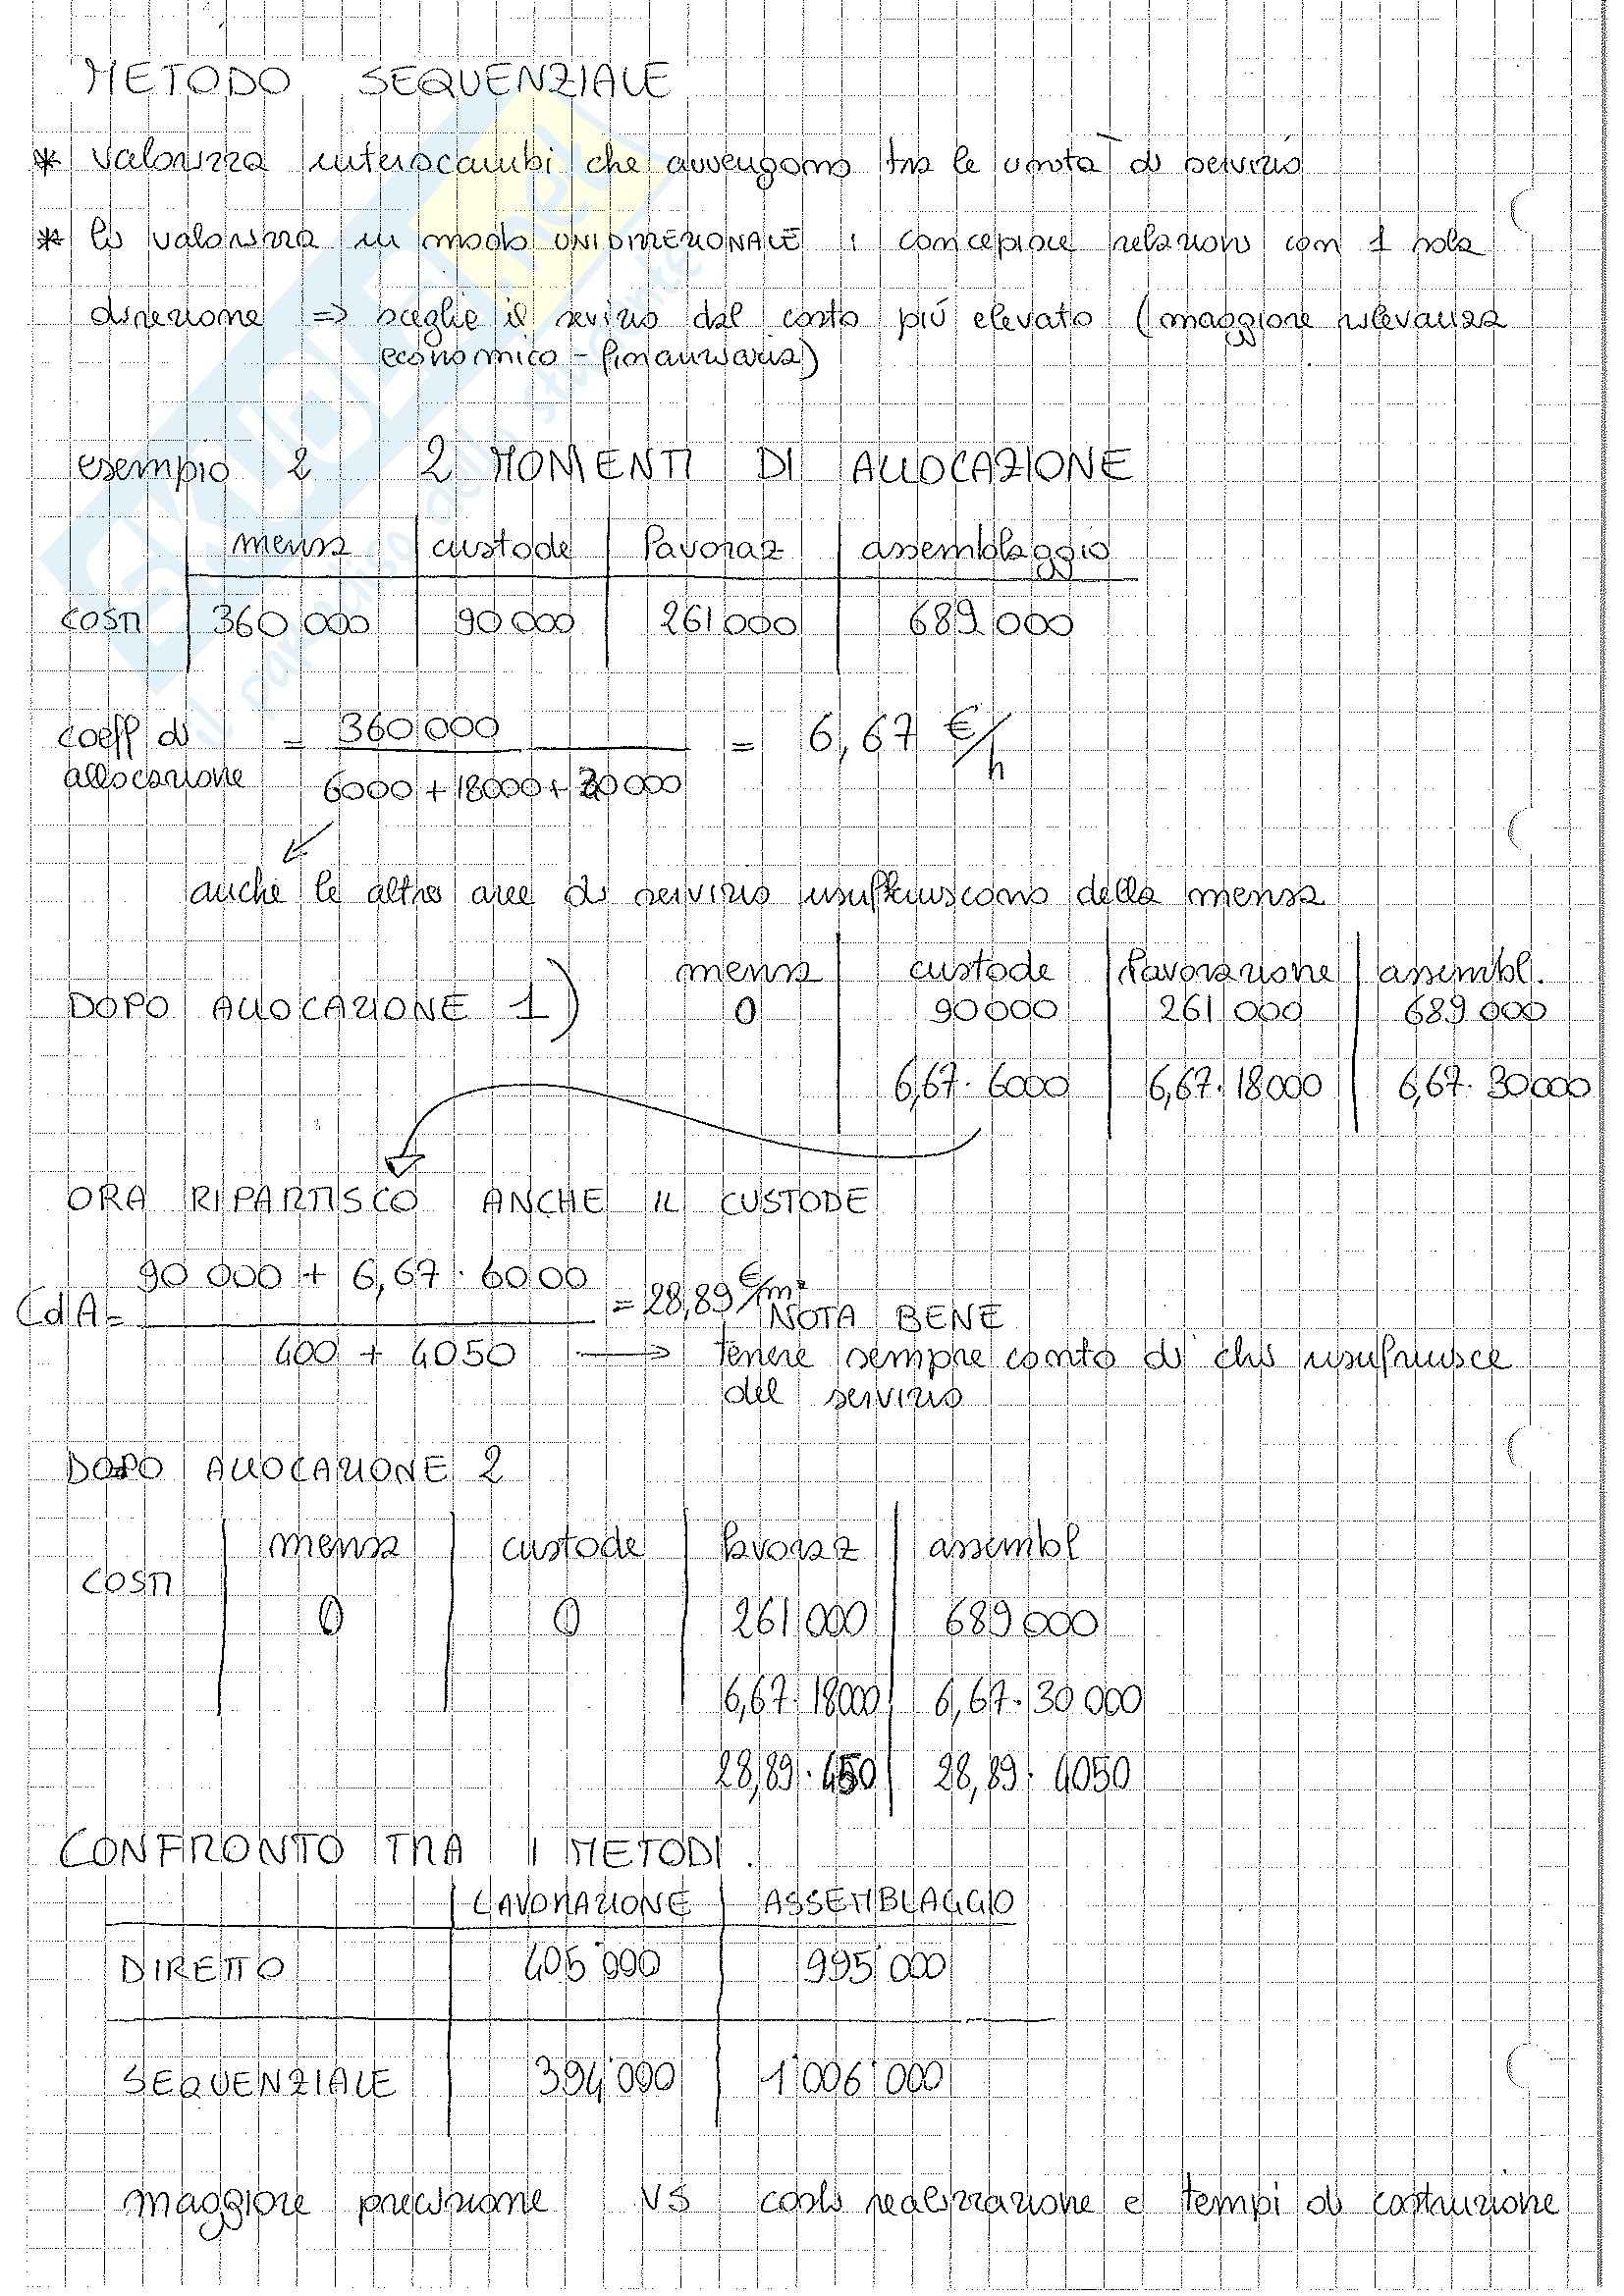 METODO SEQUENZIALE
* valorizza interscambi che avvengono tra le unità di servizio
* li valorizza in modo UNIDIREZIONALE : concepisce relazioni con 1 sola
direzione => sceglie il servizio dal costo più elevato (maggiore rilevanza
economico - finanziaria)
esempio 2 2 MOMENTI DI ALLOCAZIONE
mensa custode lavoraz assemblaggio
COSTI 360 000 90 000 261 000 689 000
coeff di allocazione = 360 000 / 6000 + 18000 + 30 000 = 6,67 €/h
anche le altre aree di servizio usufruiscono della mensa
mensa custode lavorazione assembl.
DOPO ALLOCAZIONE 1) 0 90 000 261 000 689 000
6,67 · 6000 6,67 · 18000 6,67 · 30000
ORA RIPARTISCO ANCHE IL CUSTODE
CdA = 90 000 + 6,67 · 6000 / 400 + 4050 = 28,89 €/m²
NOTA BENE
→ tenere sempre conto di chi usufruisce
del servizio
DOPO ALLOCAZIONE 2
mensa custode lavoraz assembl
COSTI
0 0 261 000 689 000
6,67 · 18000 6,67 · 30 000
28,89 · 450 28,89 · 4050
CONFRONTO TRA I METODI.
LAVORAZIONE ASSEMBLAGGIO
DIRETTO 405'000 995'000
SEQUENZIALE 394'000 1'006'000
maggiore precisione VS costi realizzazione e tempi di costruzione